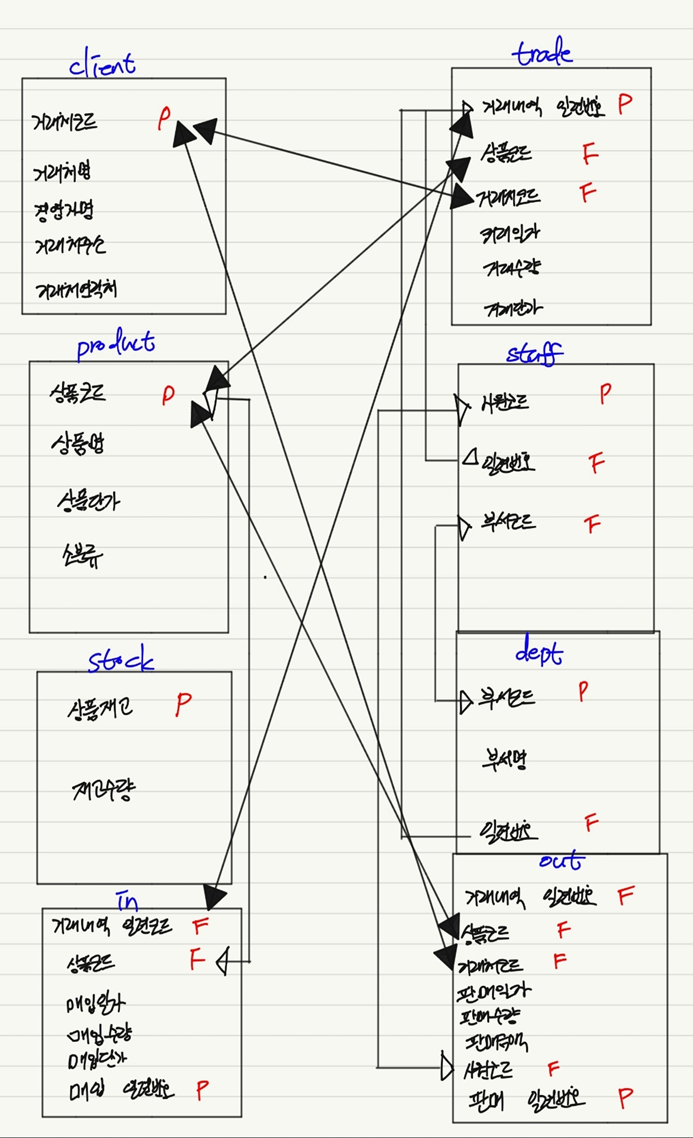 client
거래처코드 P
거래처명
경영자명
거래처주소
거래처연락처
product
상품코드 P
상품명
상품단가
소분류
stock
상품재고 P
재고수량
in
거래내역 일련코드 F
상품코드 F
매입일자
매입수량
매입단가
매입 일련번호 P
trade
거래내역 일련번호 P
상품코드 F
거래처코드 F
거래일자
거래수량
거래단가
staff
사원코드 P
일련번호 F
부서코드 F
dept
부서코드 P
부서명
일련번호 F
out
거래내역 일련번호 F
상품코드 F
거래처코드 F
판매일자
판매수량
사원코드 F
판매 일련번호 P